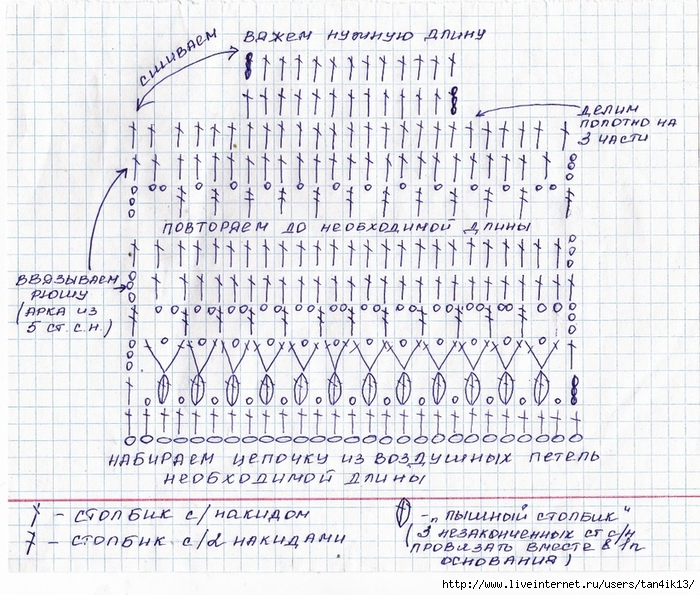 ВЯЖЕМ НУЖНУЮ ДЛИНУ
СШИВАЕМ
ДЕЛИМ
ПОЛОТНО НА
3 ЧАСТИ
ПОВТОРЯЕМ ДО НЕОБХОДИМОЙ ДЛИНЫ
ВВЯЗЫВАЕМ
РЮШУ
(АРКА ИЗ
5 СТ. С.Н.)
НАБИРАЕМ ЦЕПОЧКУ ИЗ ВОЗДУШНЫХ ПЕТЕЛЬ
НЕОБХОДИМОЙ ДЛИНЫ
- СТОЛБИК С/НАКИДОМ
- СТОЛБИК С/2 НАКИДАМИ
- „ПЫШНЫЙ СТОЛБИК"
(3 НЕЗАКОНЧЕННЫХ СТ С/Н
ПРОВЯЗАТЬ ВМЕСТЕ В 1П
ОСНОВАНИЯ)
http://www.liveinternet.ru/users/tan4ik13/